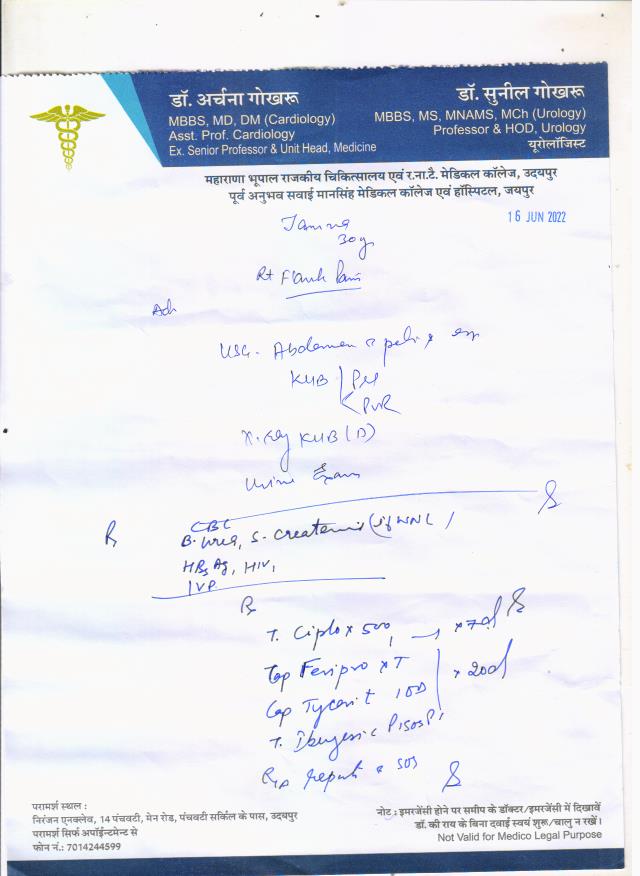 डॉ. अर्चना गोखरू
MBBS, MD, DM (Cardiology)
Asst. Prof. Cardiology
Ex. Senior Professor & Unit Head, Medicine
डॉ. सुनील गोखरू
MBBS, MS, MNAMS, MCh (Urology)
Professor & HOD, Urology
यूरोलॉजिस्ट
महाराणा भूपाल राजकीय चिकित्सालय एवं र.ना.टै. मेडिकल कॉलेज, उदयपुर
पूर्व अनुभव सवाई मानसिंह मेडिकल कॉलेज एवं हॉस्पिटल, जयपुर
16 JUN 2022
30y
Rt Flank Pain
Adv
USG. Abdomen
KUB
PVR
X-Ray KUB (D)
Urine Exam
CBC
B. Urea, S. Creatinine (if WNL)
HBsAg, HIV,
IVP
Rx
T. Ciplox 500, → x 7d
Cap
Cap
x 20d
T.
reports SOS
परामर्श स्थल :
निरंजन एनक्लेव, 14 पंचवटी, मेन रोड, पंचवटी सर्किल के पास, उदयपुर
परामर्श सिर्फ अपॉईन्टमेन्ट से
फोन नं.: 7014244599
नोट : इमरजेंसी होने पर समीप के डॉक्टर/इमरजेंसी में दिखावें
डॉ. की राय के बिना दवाई स्वयं शुरू/चालु न रखें।
Not Valid for Medico Legal Purpose